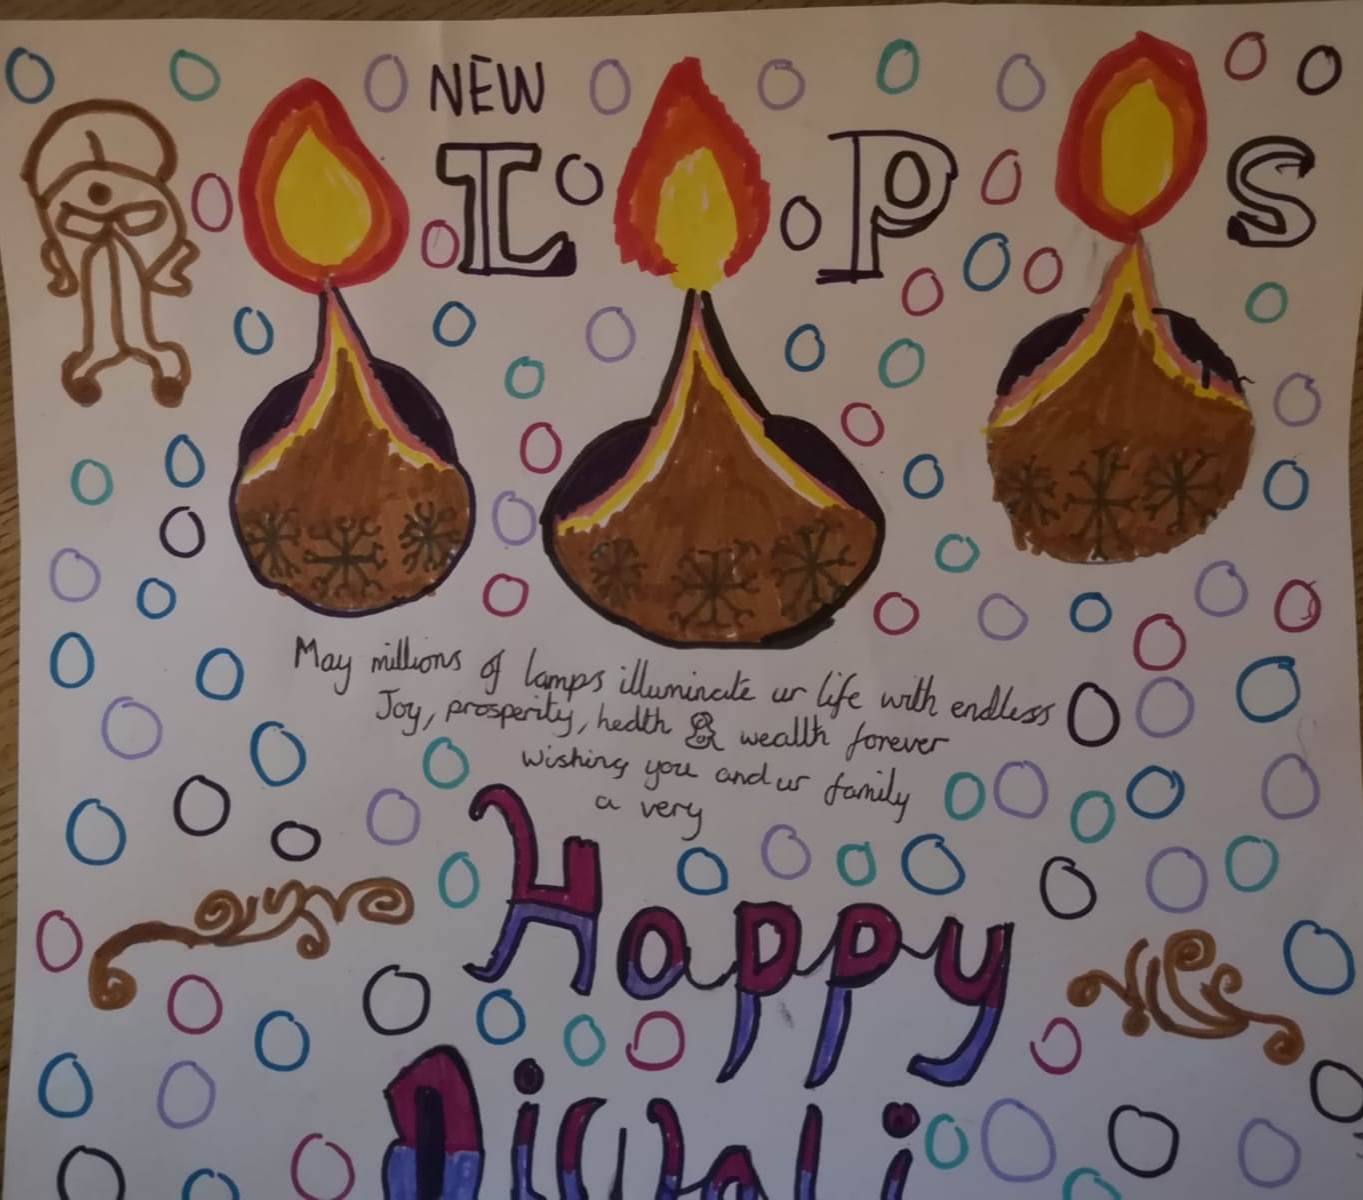 NEW
L P S
May millions of lamps illuminate ur life with endless
Joy, prosperity, health & wealth forever
wishing you and ur family
a very
Happy
Diwali